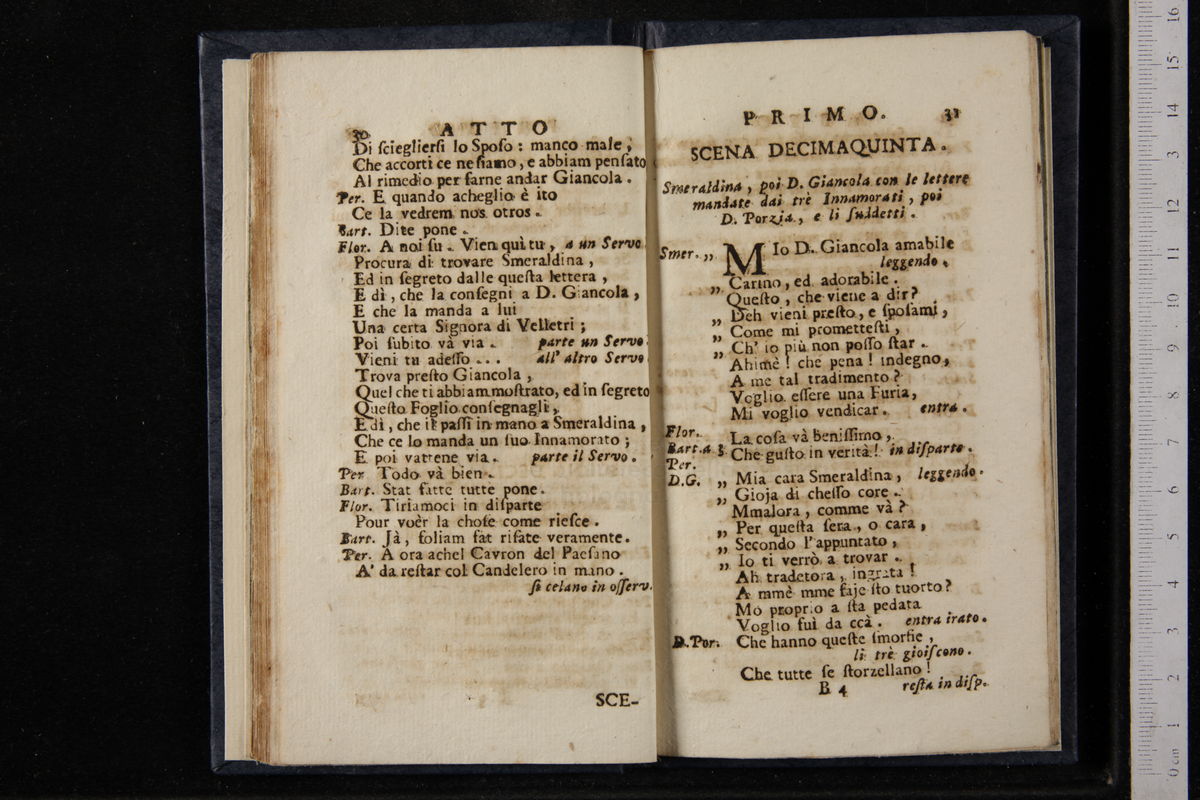 30 ATTO
Di sciegliersi lo Sposo : manco male ,
Che accorti ce ne siamo , e abbiam pensato
Al rimedio per farne andar Giancola .
Per. E quando acheglio è ito
Ce la vedrem nos otros .
Bart. Dite pone .
Flor. A noi su . Vien quì tu , a un Servo
Procura di trovare Smeraldina ,
Ed in segreto dalle questa lettera ,
E dì , che la consegni a D. Giancola ,
E che la manda a lui
Una certa Signora di Velletri ;
Poi subito và via . parte un Servo
Vieni tu adesso . . . all' altro Servo
Trova presto Giancola ,
Quel che ti abbiam mostrato, ed in segreto
Questo Foglio consegnagli ,
E dì , che il passi in mano a Smeraldina ,
Che ce lo manda un suo Innamorato ;
E poi vattene via . parte il Servo .
Per. Todo và bien .
Bart. Stat fatte tutte pone .
Flor. Tiriamoci in disparte
Pour voèr la chose come riesce .
Bart. Jà , foliam far risate veramente .
Per. A ora achel Cavron del Paesano
A' da restar col Candelero in mano .
si celano in osserv.
SCE-
PRIMO. 31
SCENA DECIMAQUINTA .
Smeraldina , poi D. Giancola con le lettere
mandate dai trè Innamorati , poi
D. Porzia , e li suddetti .
Smer. ,, MIo D. Giancola amabile
leggendo .
,, Carino , ed adorabile .
Questo , che viene a dir ?
,, Deh vieni presto , e sposami ,
,, Come mi promettesti ,
,, Ch' io più non posso star .
Ahimè ! che pena ! indegno ,
A me tal tradimento ?
Voglio essere una Furia ,
Mi voglio vendicar . entra .
Flor. La cosa và benissimo ,
Bart. a 3 Che gusto in verità ! in disparte .
Per.
D.G. ,, Mia cara Smeraldina , leggendo .
,, Gioja di chesso core .
Mmalora , comme và ?
,, Per questa sera , o cara ,
,, Secondo l' appuntato ,
,, Io ti verrò a trovar .
Ah tradetora , ingrata !
A mmè mme faje sto tuorto ?
Mo proprio a sta pedata
Voglio fuì da ccà . entra irato .
D.Por. Che hanno queste smorfie ,
li trè gioiscono .
Che tutte se storzellano !
B 4 resta in disp.